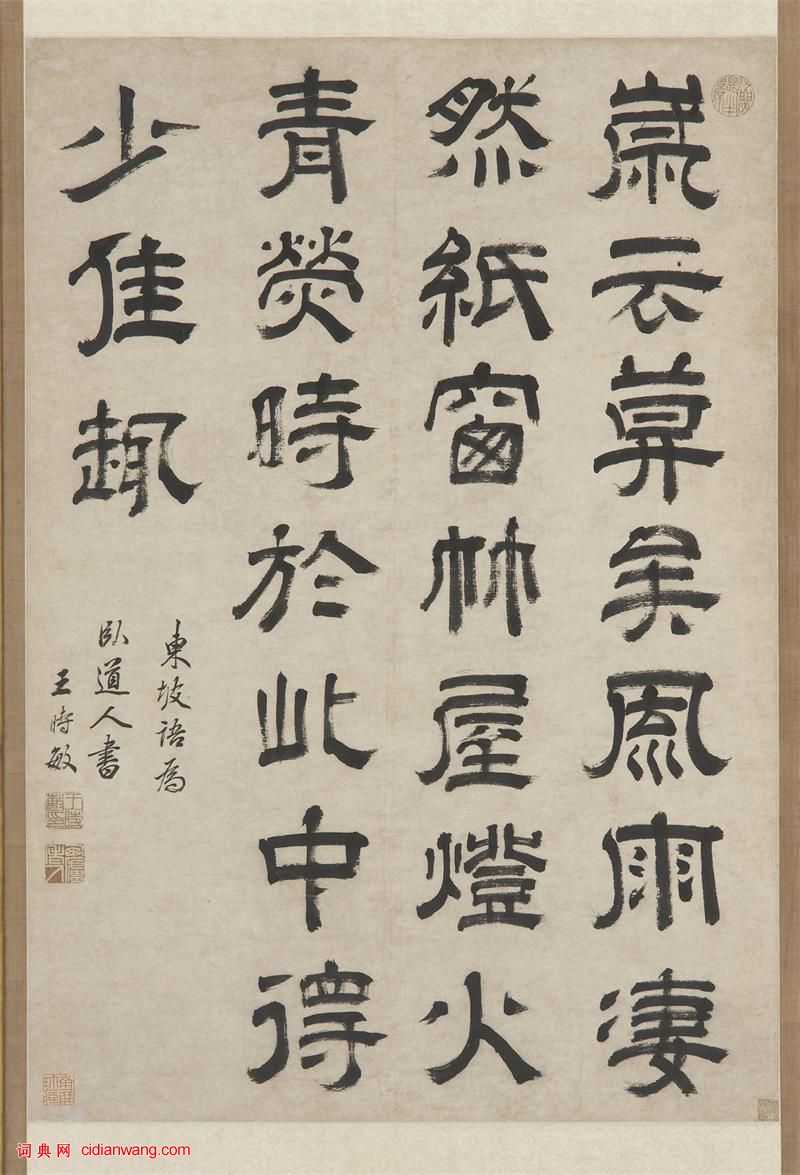 歲云莫矣風雨凄
然紙窗竹屋燈火
青熒時於此中得
少佳趣
東坡語為
臥道人書
王時敏
词典网 cidianwang.com